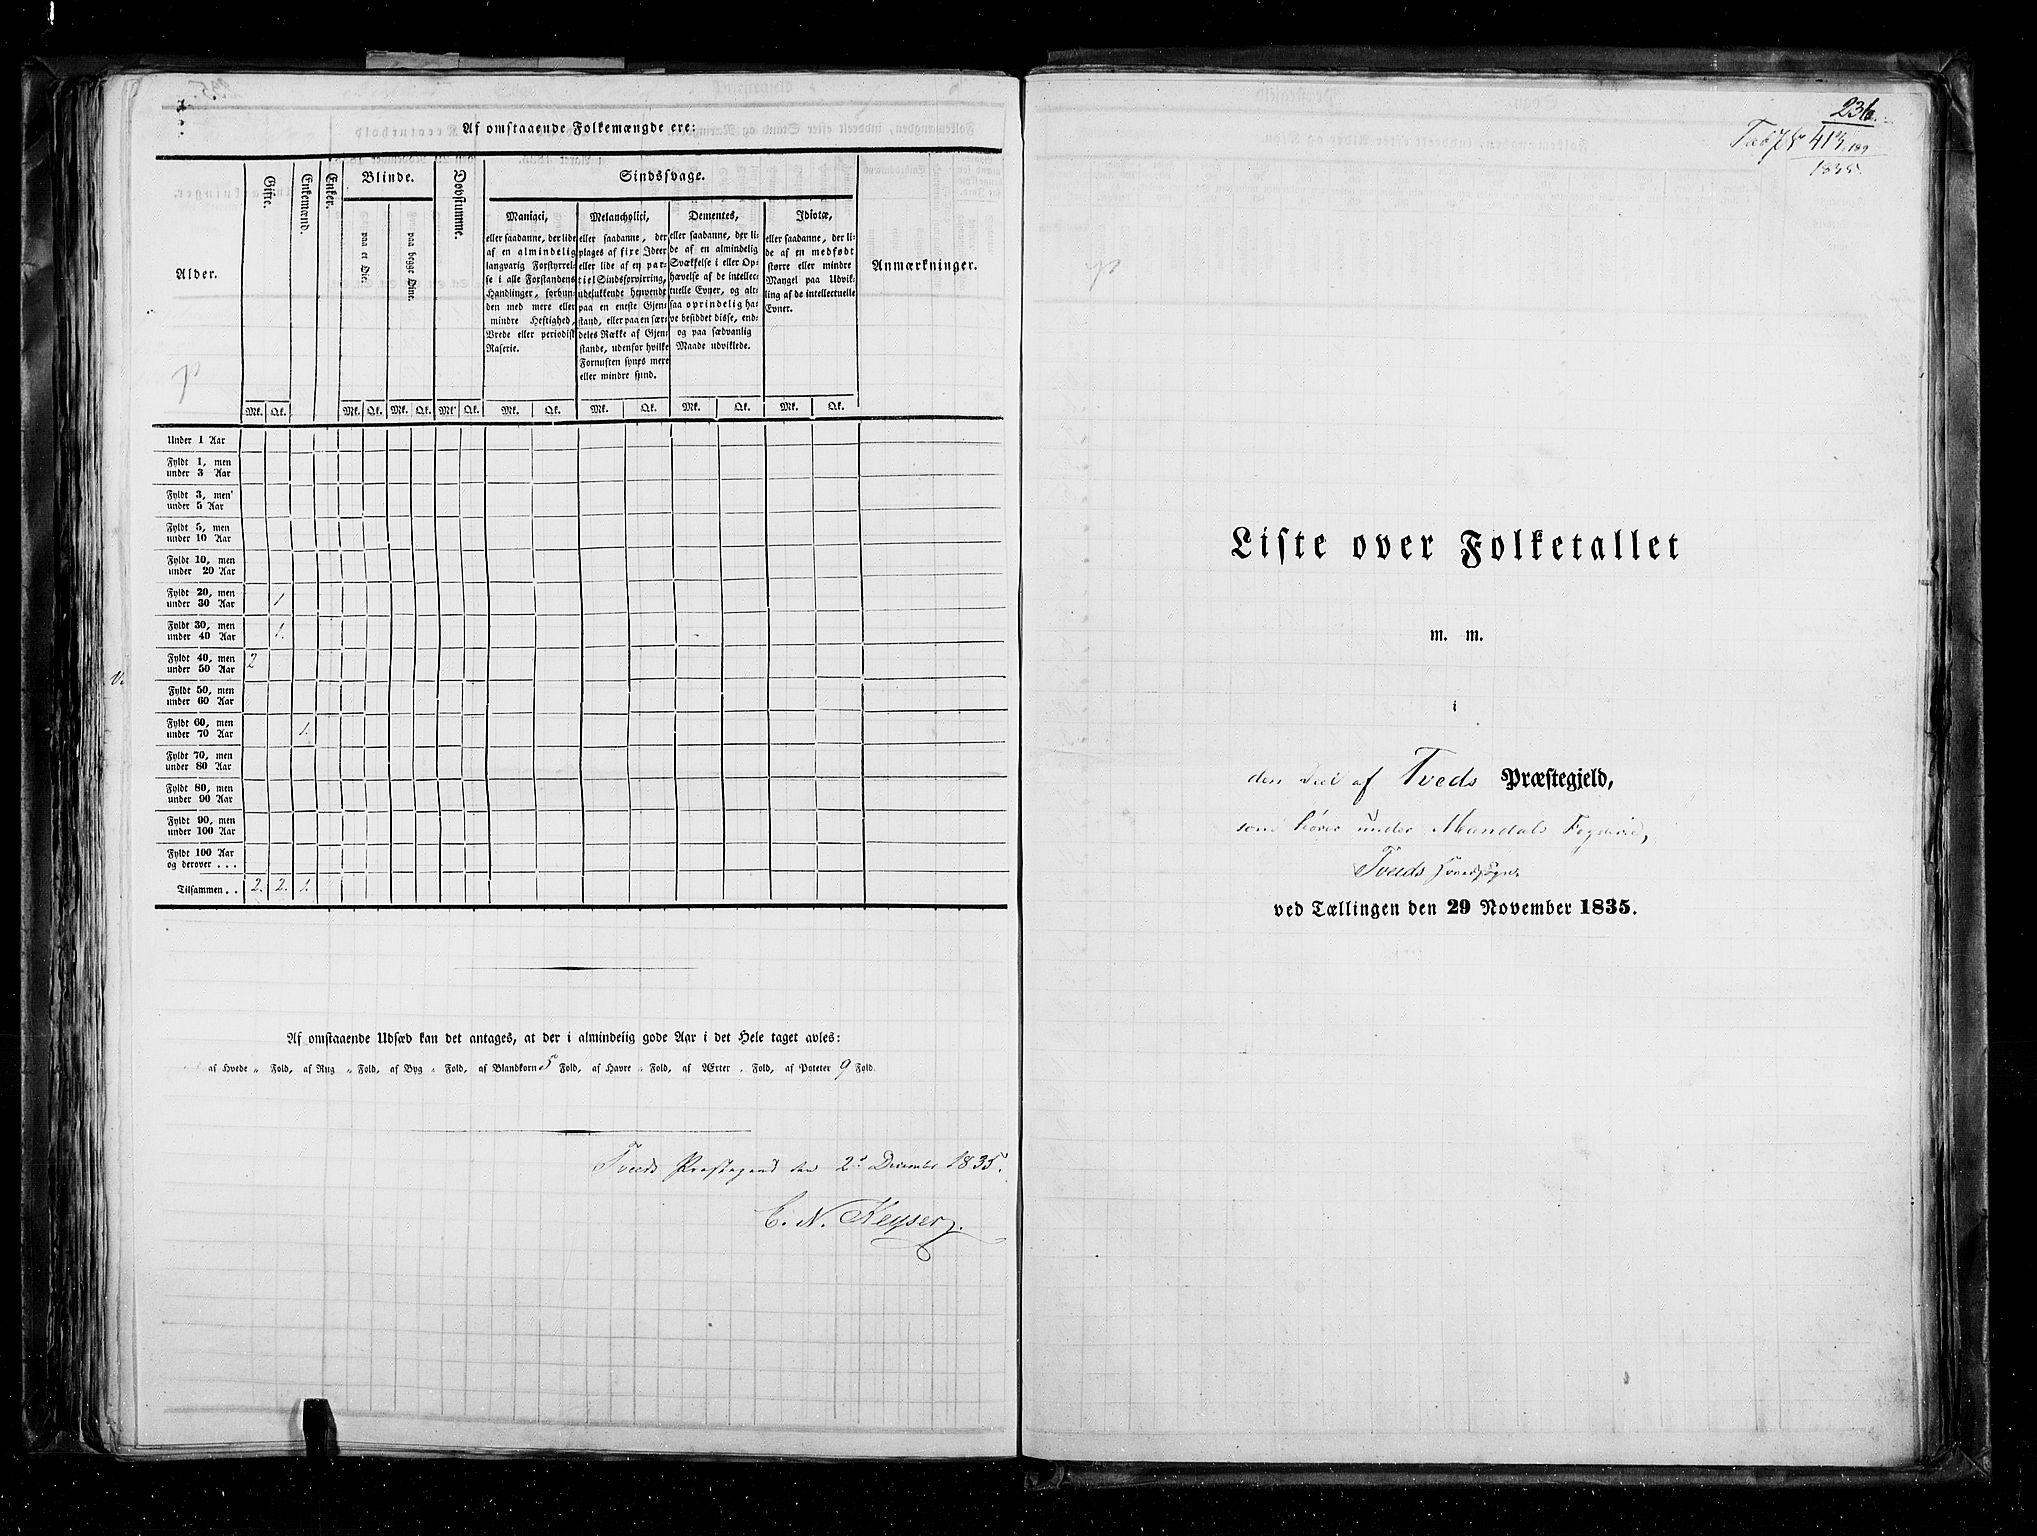 Af omstaaende Folkemængde ere:
Alder.
Gifte.
Enkemænd.
Enker.
Blinde.
paa et Øie.
paa begge Øine.
Døvstumme.
Sindssvage.
Maniaci,
eller saadanne, der lide
af en almindelig
langvarig Forstyrrel-
se i alle Forstandens
Handlinger, forbun-
den med mere eller
mindre Heftighed,
Vrede eller periodisk
Raserie.
Melancholici,
eller saadanne, der
plages af fixe Ideer
eller lide af en par-
tiel Sindsforvirring,
udelukkende henvendt
paa en eneste Gjen-
stand, eller paa en sær-
deles Række af Gjen-
stande, udenfor hvilke
Fornuften synes mere
eller mindre sund.
Dementes,
eller saadanne, der li-
de af en almindelig
Svækkelse i eller Op-
hævelse af de intellec-
tuelle Evner, og alt-
saa oprindelig ha-
ve besiddet disse, end-
og paa sædvanlig
Maade udviklede.
Idiotæ,
eller saadanne, der li-
de af en medfødt
større eller mindre
Mangel paa Udvik-
ling af de intellectuelle
Evner.
Anmærkninger.
Mk. Qk. Mk. Qk. Mk. Qk. Mk. Qk. Mk. Qk. Mk. Qk. Mk. Qk. Mk. Qk.
Under 1 Aar
Fyldt 1, men
under 3 Aar
Fyldt 3, men
under 5 Aar
Fyldt 5, men
under 10 Aar
Fyldt 10, men
under 20 Aar
Fyldt 20, men
under 30 Aar 1
Fyldt 30, men
under 40 Aar 1.
Fyldt 40, men
under 50 Aar 2
Fyldt 50, men
under 60 Aar
Fyldt 60, men
under 70 Aar 1.
Fyldt 70, men
under 80 Aar
Fyldt 80, men
under 90 Aar
Fyldt 90, men
under 100 Aar
Fyldt 100 Aar
og derover . . .
Tilsammen . . 2. 2. 1.
Af omstaaende Udsæd kan det antages, at der i almindelig gode Aar i det Hele taget avles:
af Hvede " Fold, af Rug " Fold, af Byg " Fold, af Blandkorn 5 Fold, af Havre " Fold, af Ærter " Fold, af Poteter 9 Fold.
Tveds Præstegaard den 2d December 1835.
C. N. Keyser
236.
413
1835
Liste over Folketallet
m. m.
i
den Deel af Tveds Præstegjeld,
som hører under Mandals Fogderie,
Tveds Hovedsogn.
ved Tællingen den 29 November 1835.